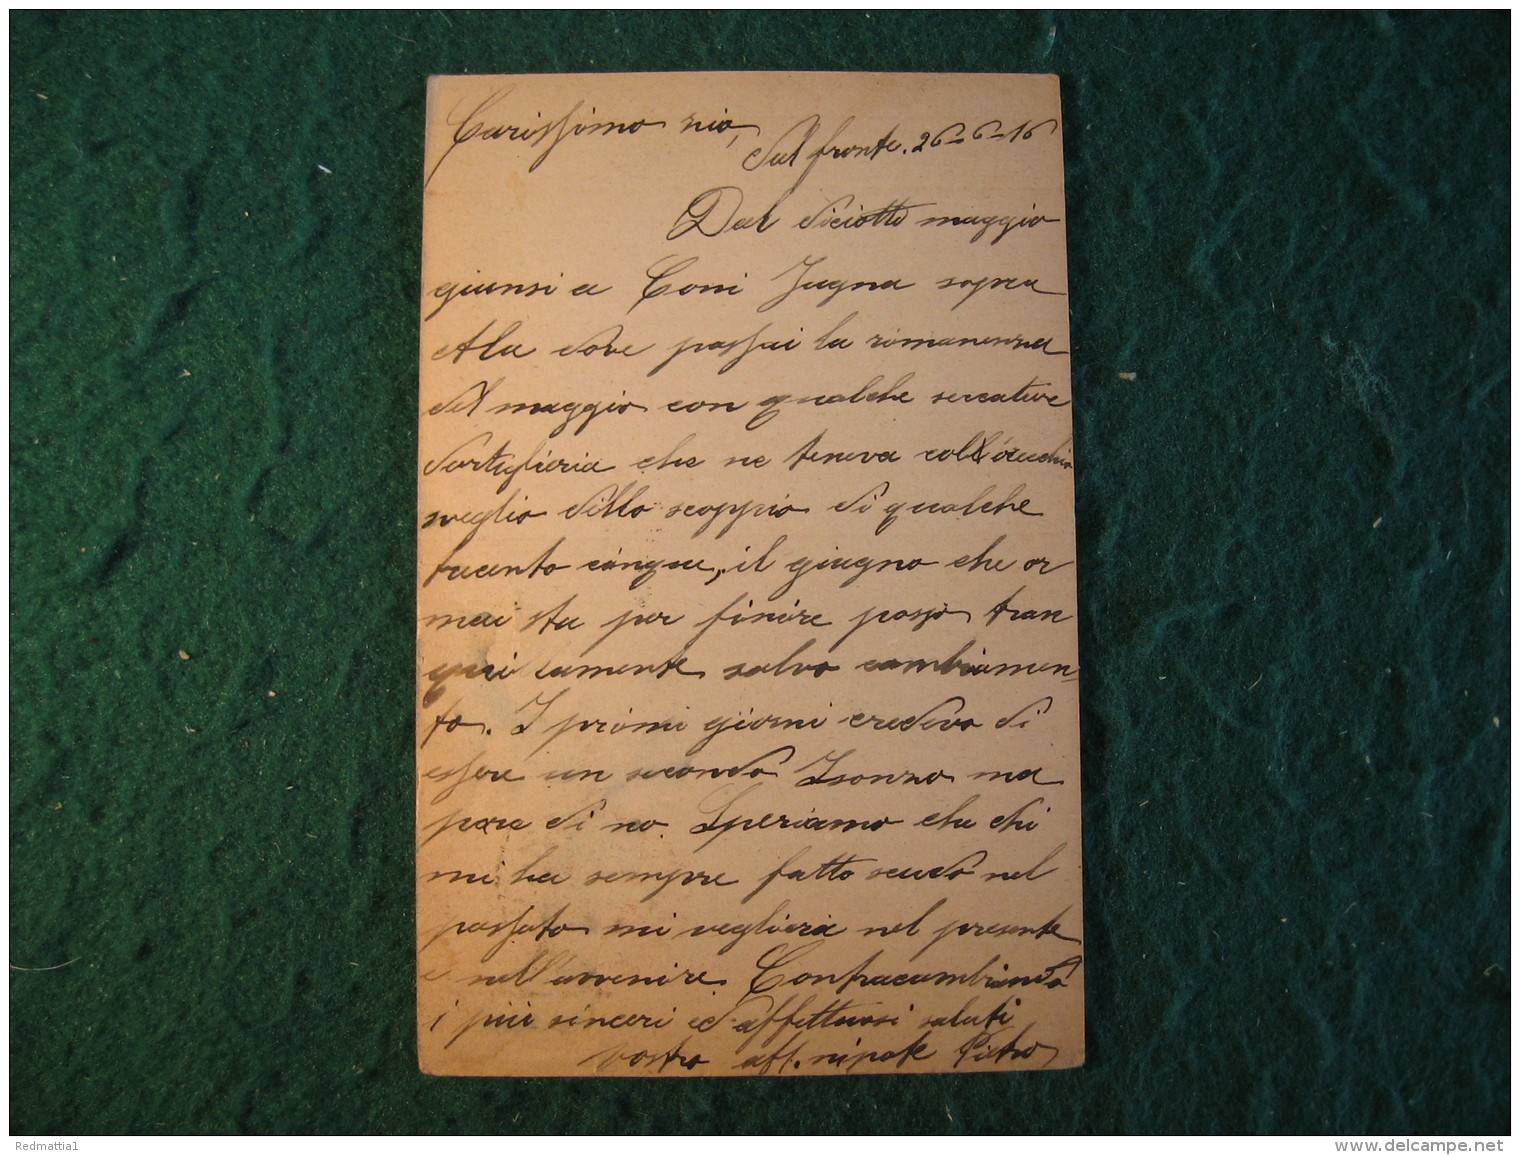 Carissimo zio,
Sul fronte. 26-6-16
Dal diciotto maggio
giunsi a Coni Zugna sopra
Ala dove passai la rimanenza
del maggio con qualche sercature
d'artiglieria che ne teneva coll'ócechio
sveglio dello scoppio di qualche
trecento cinque, il giugno che or
mai sta per finire passo tran
quilamente salvo cambiamen-
to. I primi giorni credevo di
essere un secondo Isonzo ma
pare di no. Speriamo che chi
mi ha sempre fatto scudo nel
passato mi veglierà nel presente
e nell'avvenire. Contracambiando
i più sinceri ed affettuosi saluti
vostro aff. nipote Pietro
Redmattia1
www.delcampe.net